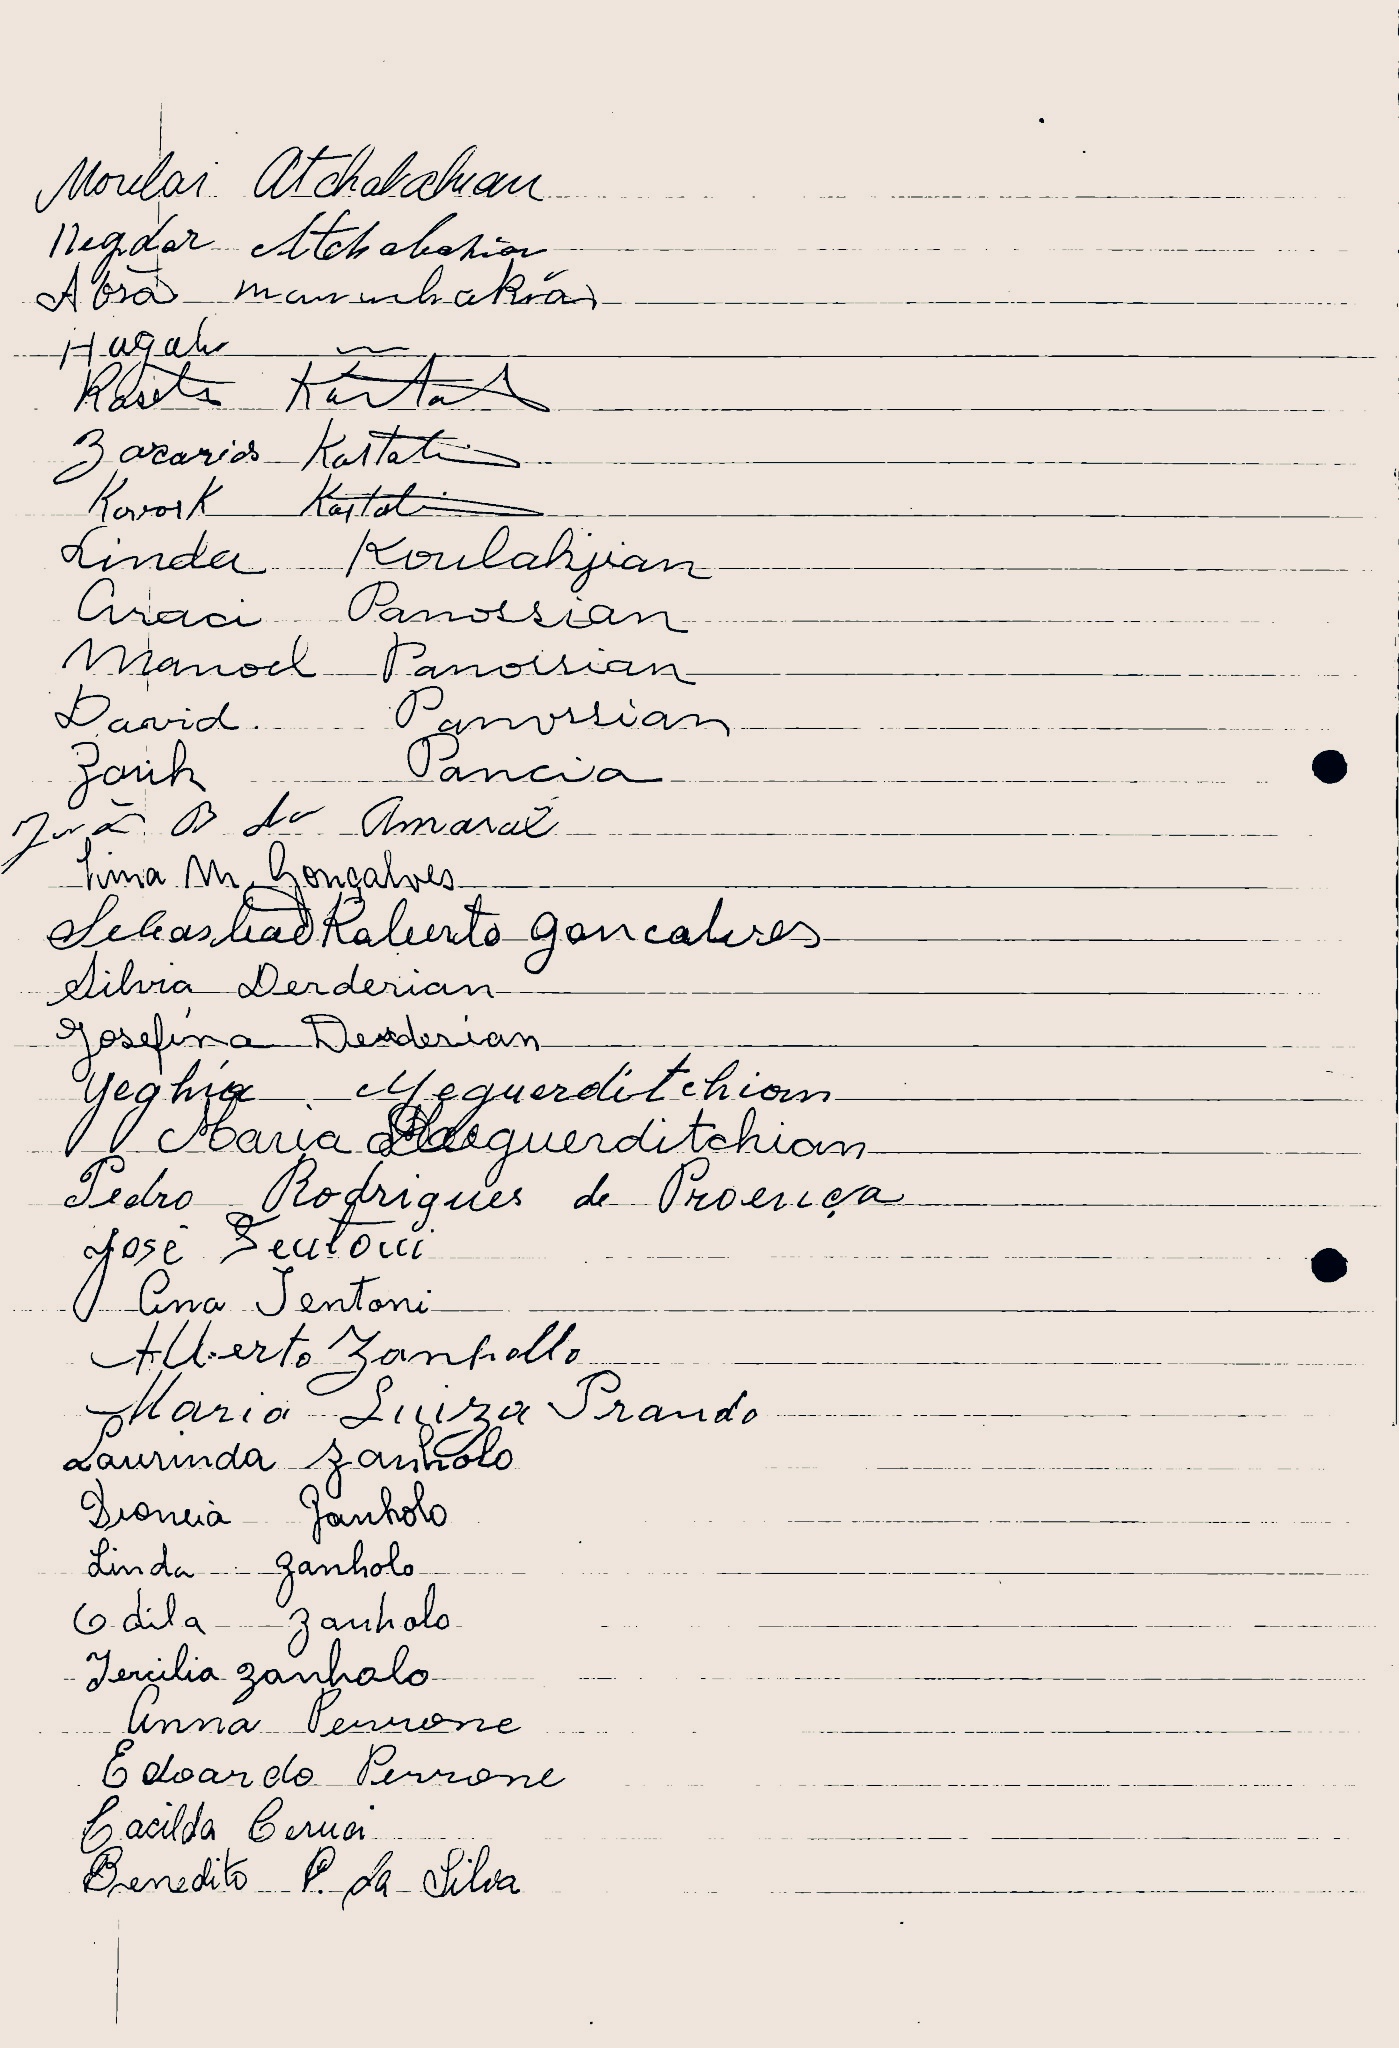 Atchabahian
Negdar Atchabahian
Abrã
Hagah
Kastat
Zacarias Kastat
Kevork Kastat
Linda Koulahjian
Araci Panossian
Manoel Panossian
David Panossian
Zarik Pancia
João B do Amaral
Lima M. Gonçalves
Sebastiao Roberto Goncalves
Silvia Derderian
Josefina Derderian
Yeghia Meguerditchian
Maria Meguerditchian
Pedro Rodrigues de Proença
José Tentoni
Ana Tentoni
Alberto Zanhollo
Maria Luiza Prando
Laurinda Zanholo
Dioneia Zanholo
Linda Zanholo
Odila Zanholo
Tercilia Zanholo
Anna Perrone
Edoardo Perrone
Cacilda Ceruci
Benedito P. da Silva